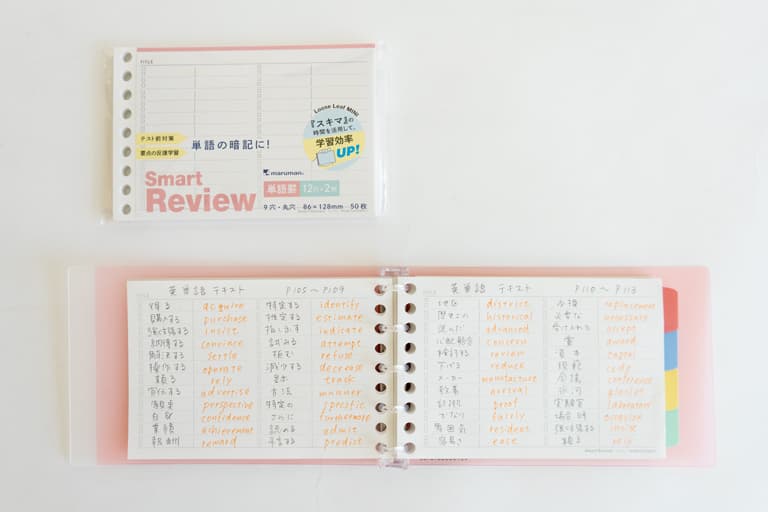 TITLE
Loose Leaf MINI
『スキマ』の
時間を活用して、
学習効率
UP!
テスト前対策
要点の反復学習
単語の暗記に!
maruman
Smart
Review
単語罫 12行×2列
9穴・丸穴 86×128mm 50枚
英単語 テキスト P105〜P109
得る acquire 特定する identify
購入する purchase 推定する estimate
強く主張する insist 指し示す indicate
納得する convince 試みる attempt
解決する settle 拒む refuse
操作する operate 減少する decrease
頼る rely track
宣伝する advertise 方法 manner
perspective 特定の specific
自信 confidence さらに furthermore
業績 achievement 認める admit
報酬 reward 予言する predict
英単語 テキスト P110〜P113
地区 district replacement
歴史上の historical 必要な necessary
進んだ advanced 受け入れる accept
心配 concern 賞 award
検討する review 資本 capital
下げる reduce code
メーカー manufacture 会議 conference
到着 arrival planet
証拠 proof 実験室 laboratory
かなり fairly
resident 強く主張する insist
容易さ ease 頼る rely